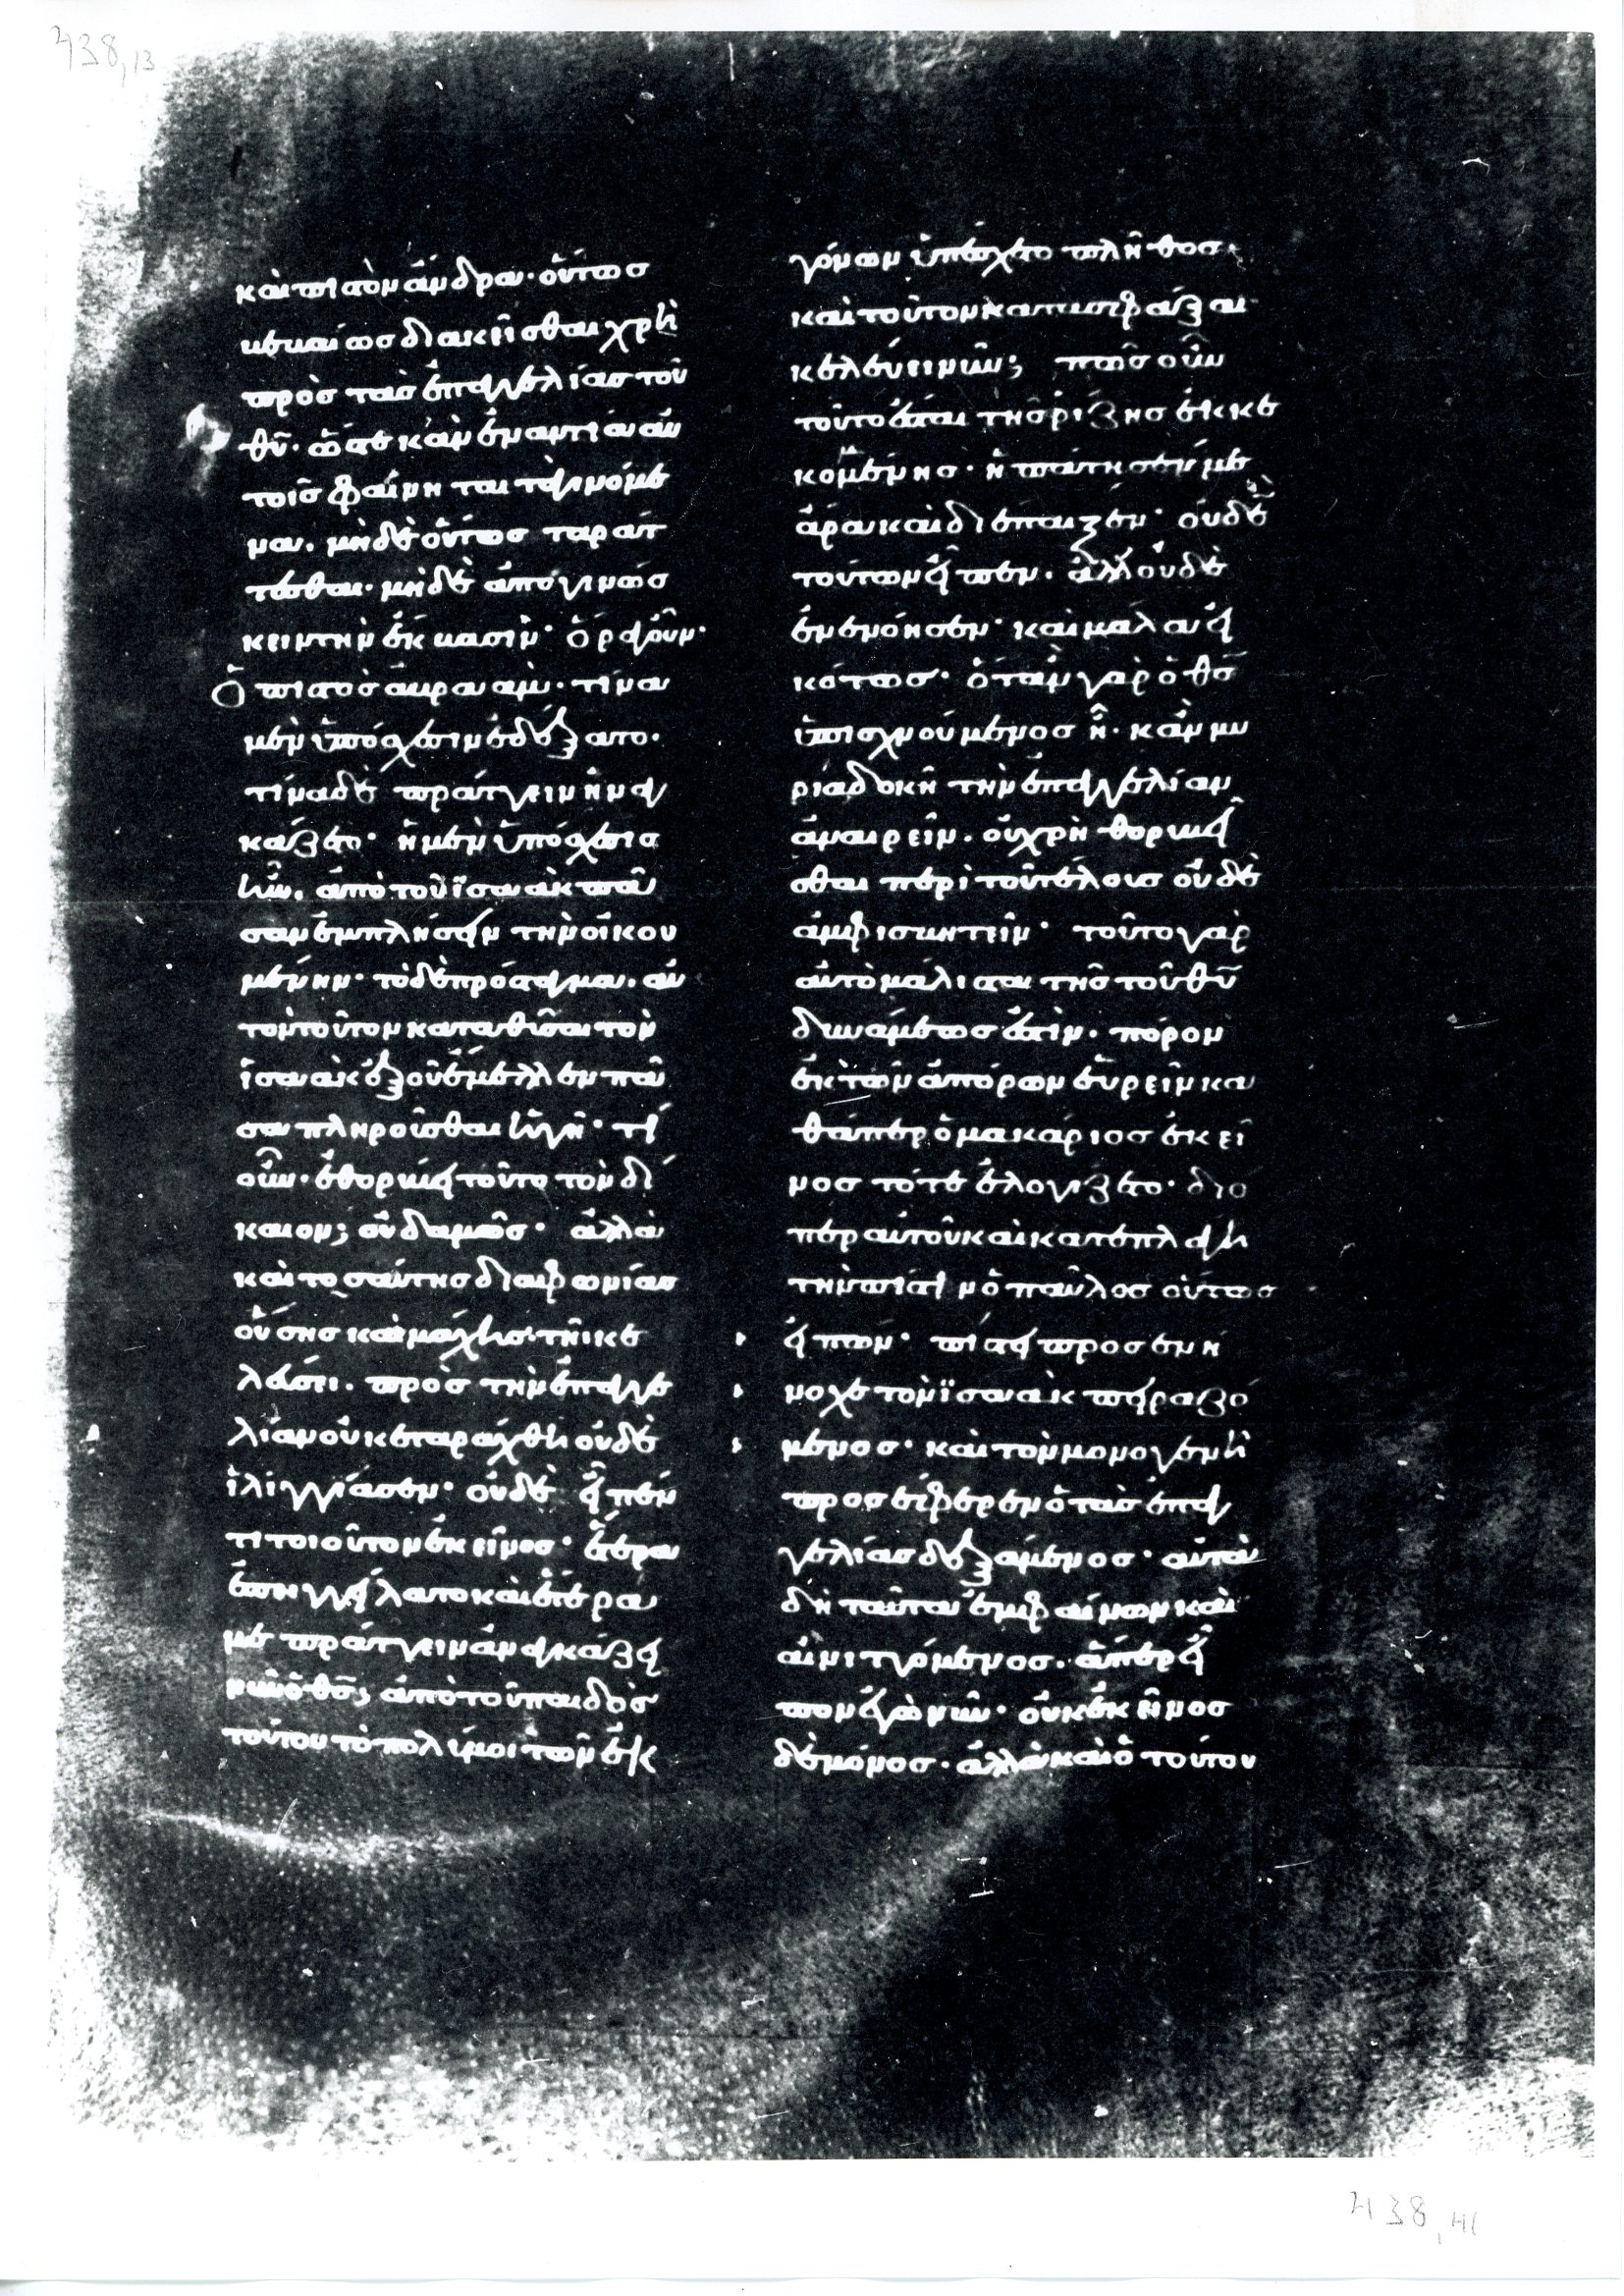 438,13
καὶ πιστὸν ἄνδρα· οὕτως
βεβαίως διακεῖσθαι χρὴ
πρὸς τὰς ἐπαγγελίας τοῦ
θῦ· ὥστε κἂν ἐναντία αὐ
τοῖς φαίνηται τὰ γινόμε
να. μηδὲ οὕτως ταράτ
τεσθαι· μηδὲ ἀπογινώσ
κειν τὴν ἔκβασιν· ὅρα γοῦν·
Ὁ πιστὸς ἀβραάμ· τίνα
μὲν ὑπόσχεσιν ἐδέξατο·
τίνα δὲ πράττειν ἠναγ
κάζετο· ἡ μὲν ὑπόσχεσις
ἦν. ἀπὸ τοῦ ἰσαὰκ πᾶ
σαν ἐμπλήσειν τὴν οἰκου
μένην· τὸ δὲ πρόσταγμα. αὐ
τὸν τοῦτον καταθῦσαι τὸν
ἰσαὰκ ἐξ οὗ ἔμελλεν πᾶ
σα πληροῦσθαι ἡ γῆ· τί
οὖν· ἐθορύβει τοῦτο τὸν δί
καιον; οὐδαμῶς· ἀλλὰ
καὶ τοσαύτης διαφωνίας
οὔσης καὶ μάχης· τῇ κε
λεύσει. πρὸς τὴν ἐπαγγε
λίαν οὐκ ἐταράχθη οὐδὲ
ἰλιγγίασεν· οὐδὲ εἶπέν
τι τοιοῦτον ἐκεῖνος· ἕτερα
ἐπηγγείλατο καὶ ἕτερά
με πράττειν ἀναγκάζει
νῦν ὁ θς; ἀπὸ τοῦ παιδὸς
τούτου τὸ πολύ μοι τῶν ἐκ
γόνων ὑπέσχετο πλῆθος·
καὶ τοῦτον κατασφάξαι
κελεύει μοι; πῶς οὖν
τοῦτο ἔσται τῆς ῥίζης ἐκκε
κομμένης· ἠπάτησέν με
ἆρα καὶ διέπαιζεν· οὐδὲν
τούτων εἶπεν. ἀλλ' οὐδὲ
ἐνενόησεν· καὶ μάλα εἰ
κότως· ὅταν γὰρ ὁ θς
ὑπισχνούμενος ἦ· κἂν μυ
ρία δοκῇ τὴν ἐπαγγελίαν
ἀναιρεῖν. οὐ χρὴ θορυβεῖ
σθαι περὶ τοῦ τέλους οὐδὲ
ἀμφισβητεῖν· τοῦτο γὰρ
αὐτὸ μάλιστα τῆς τοῦ θῦ
δυνάμεως ἐστὶν. πόρον
ἐκ τῶν ἀπόρων εὑρεῖν κα
θάπερ ὁ μακάριος ἐκεῖ
νος τότε ἐλογίζετο· διό
περ αὐτοῦ καὶ κατεπλάγη
τὴν πίστιν ὁ παῦλος οὕτως
εἰπών· πίστει προσενή
νοχε τὸν ἰσαὰκ πειραζό
μενος· καὶ τὸν μονογενῆ
προσέφερεν ὁ τὰς ἐπαγ
γελίας δεξάμενος· αὐτὰ
δὴ ταῦτα ἐμφαίνων καὶ
αἰνιττόμενος. ἅπερ εἶ
πον ἐγὼ νῦν· οὐκ ἐκεῖνος
δὲ μόνος· ἀλλὰ καὶ ὁ τούτου
438,41